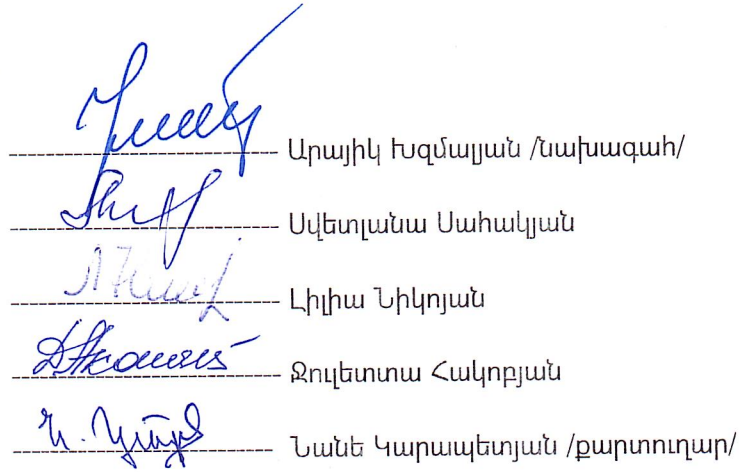 Արայիկ Խզմալյան /նախագահ/
Սվետլանա Սահակյան
Լիլիա Նիկոյան
Ջուլետտա Հակոբյան
Նանե Կարապետյան /քարտուղար/